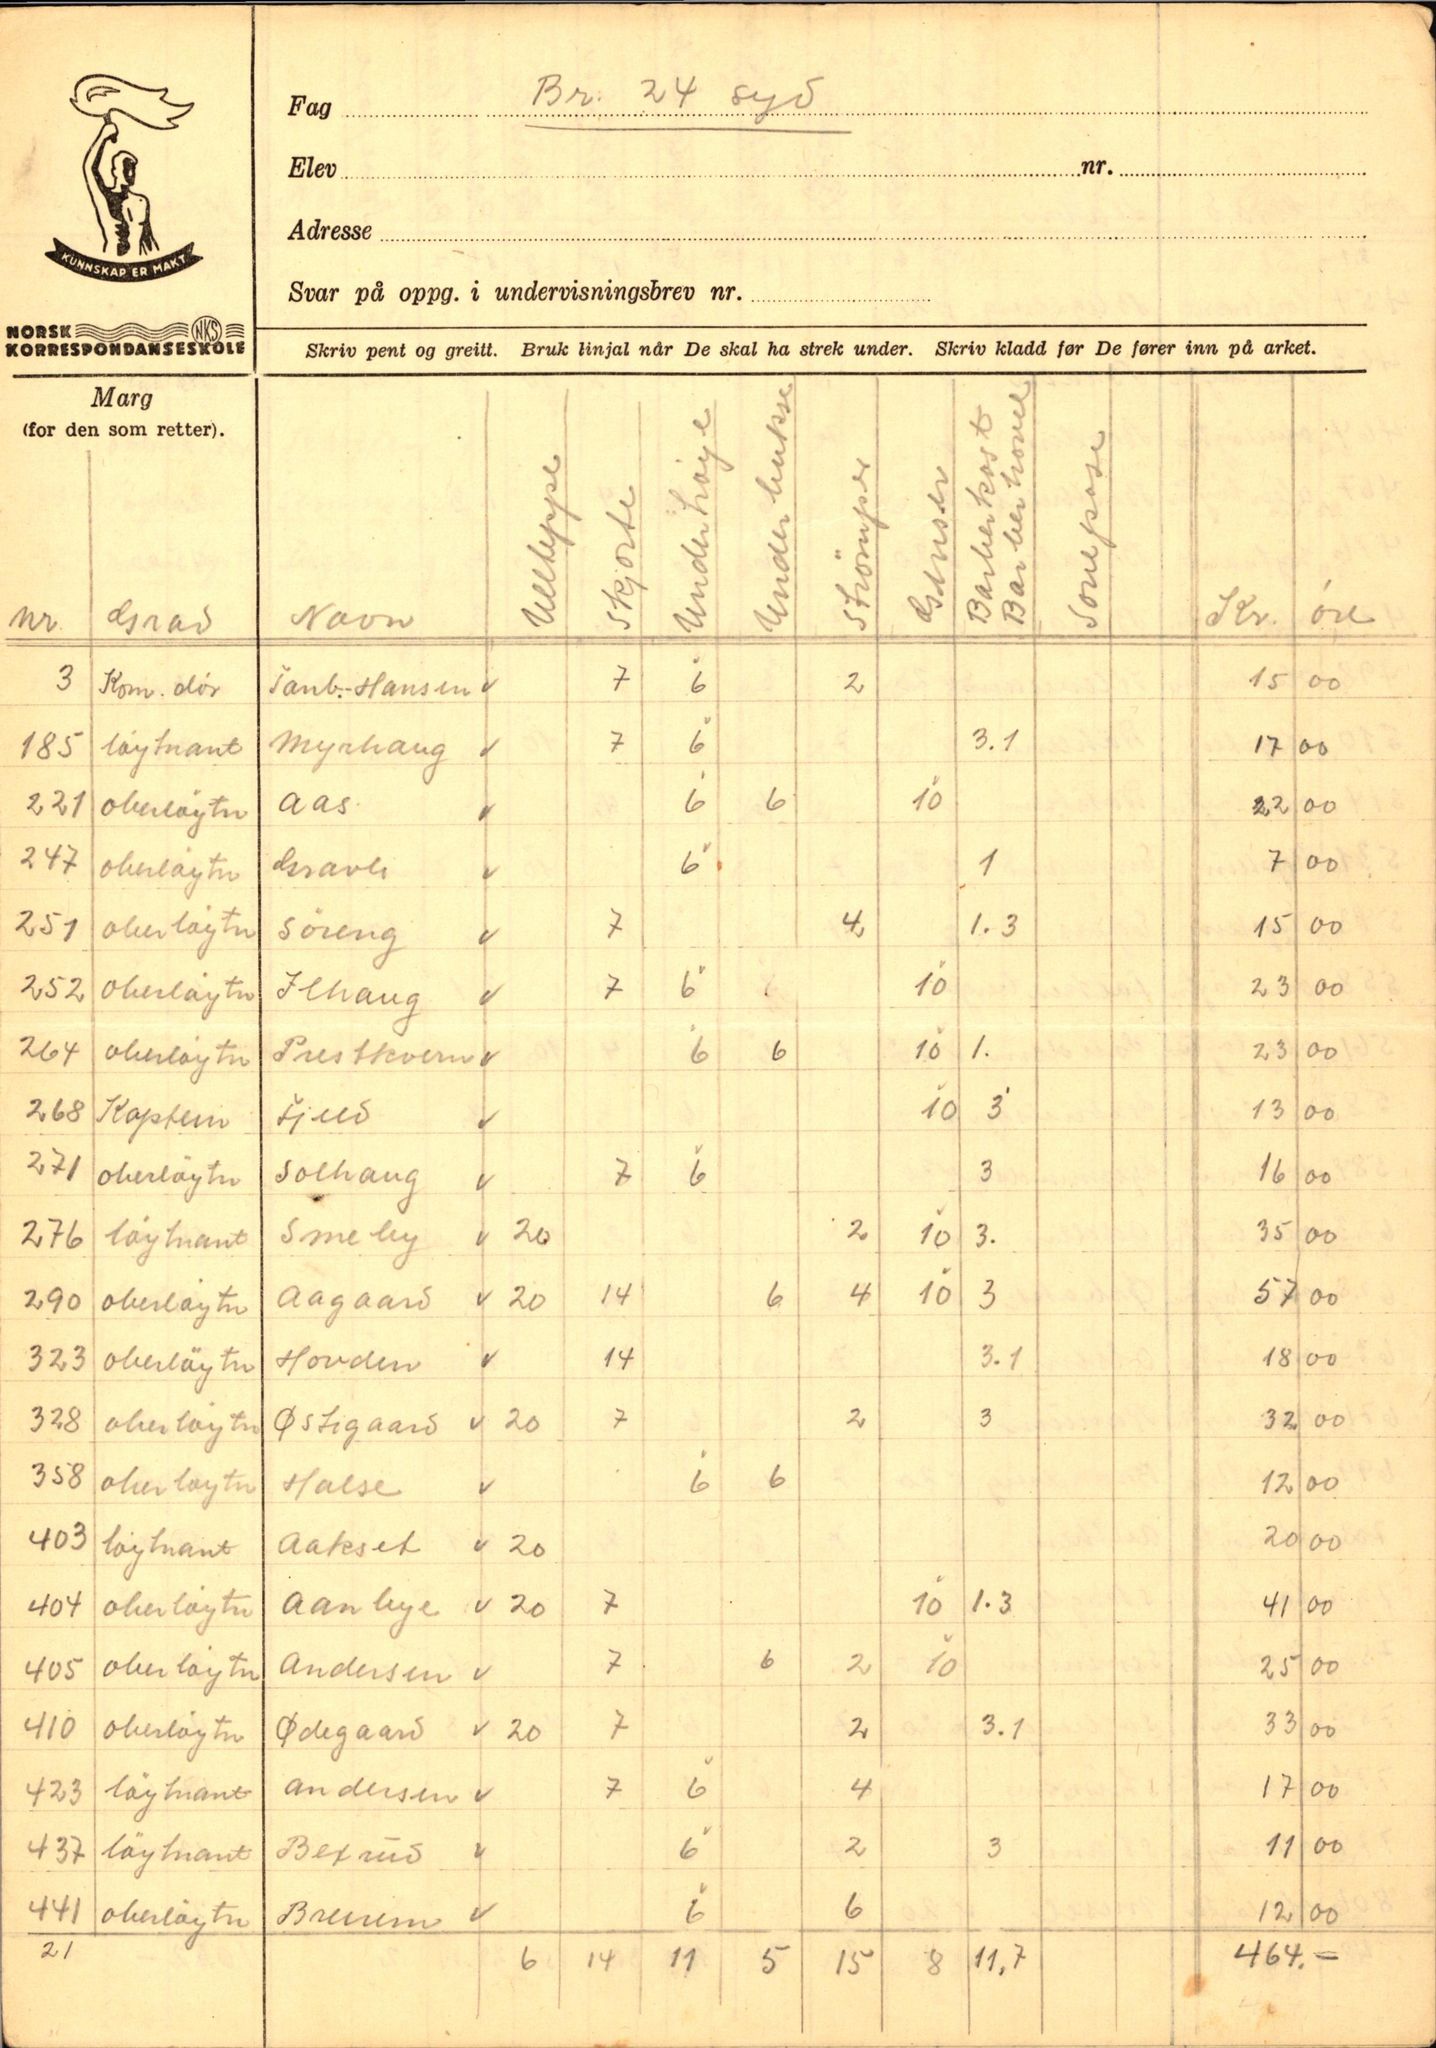 Fag Br. 24 syd
Elev nr.
Adresse
Svar på oppg. i undervisningsbrev nr.
KUNNSKAP ER MAKT
NORSK NKS
KORRESPONDANSESKOLE
Skriv pent og greitt. Bruk linjal når De skal ha strek under. Skriv kladd før De fører inn på arket.
Marg
(for den som retter).
nr. Grad Navn Ullteppe Skjorte Undertrøye Underbukse Strømper Genser Barberkost Barberhøvel Sovepose Kr. øre
3 Kom. dör Tanb.-Hansen v 7 6 2 15 00
185 löytnant Myrhaug v 7 6 3.1 17 00
221 oberlöytn Aas v 6 6 10 22 00
247 oberlöytn Gravli v 6 1 7 00
251 oberlöytn Söreng v 7 4 1.3 15 00
252 oberlöytn Ilhaug v 7 6 10 23 00
264 oberlöytn Prestkvern v 6 6 10 1. 23 00
268 Kaptein Fjeld v 10 3 13 00
271 oberlöytn Solhaug v 7 6 3 16 00
276 löytnant Smeby v 20 2 10 3. 35 00
290 oberlöytn Aagaard v 20 14 6 4 10 3 57 00
323 oberlöytn Hovden v 14 3.1 18 00
328 oberlöytn Østigaard v 20 7 2 3 32 00
358 oberlöytn Halse v 6 6 12 00
403 löytnant Aakset v 20 20 00
404 oberlöytn Aanbye v 20 7 10 1.3 41 00
405 oberlöytn Andersen v 7 6 2 10 25 00
410 oberlöytn Ødegaard v 20 7 2 3.1 33 00
423 löytnant Andersen v 7 6 4 17 00
437 löytnant Bexrud v 6 2 3 11 00
441 oberlöytn v 6 6 12 00
21 6 14 11 5 15 8 11,7 464.-